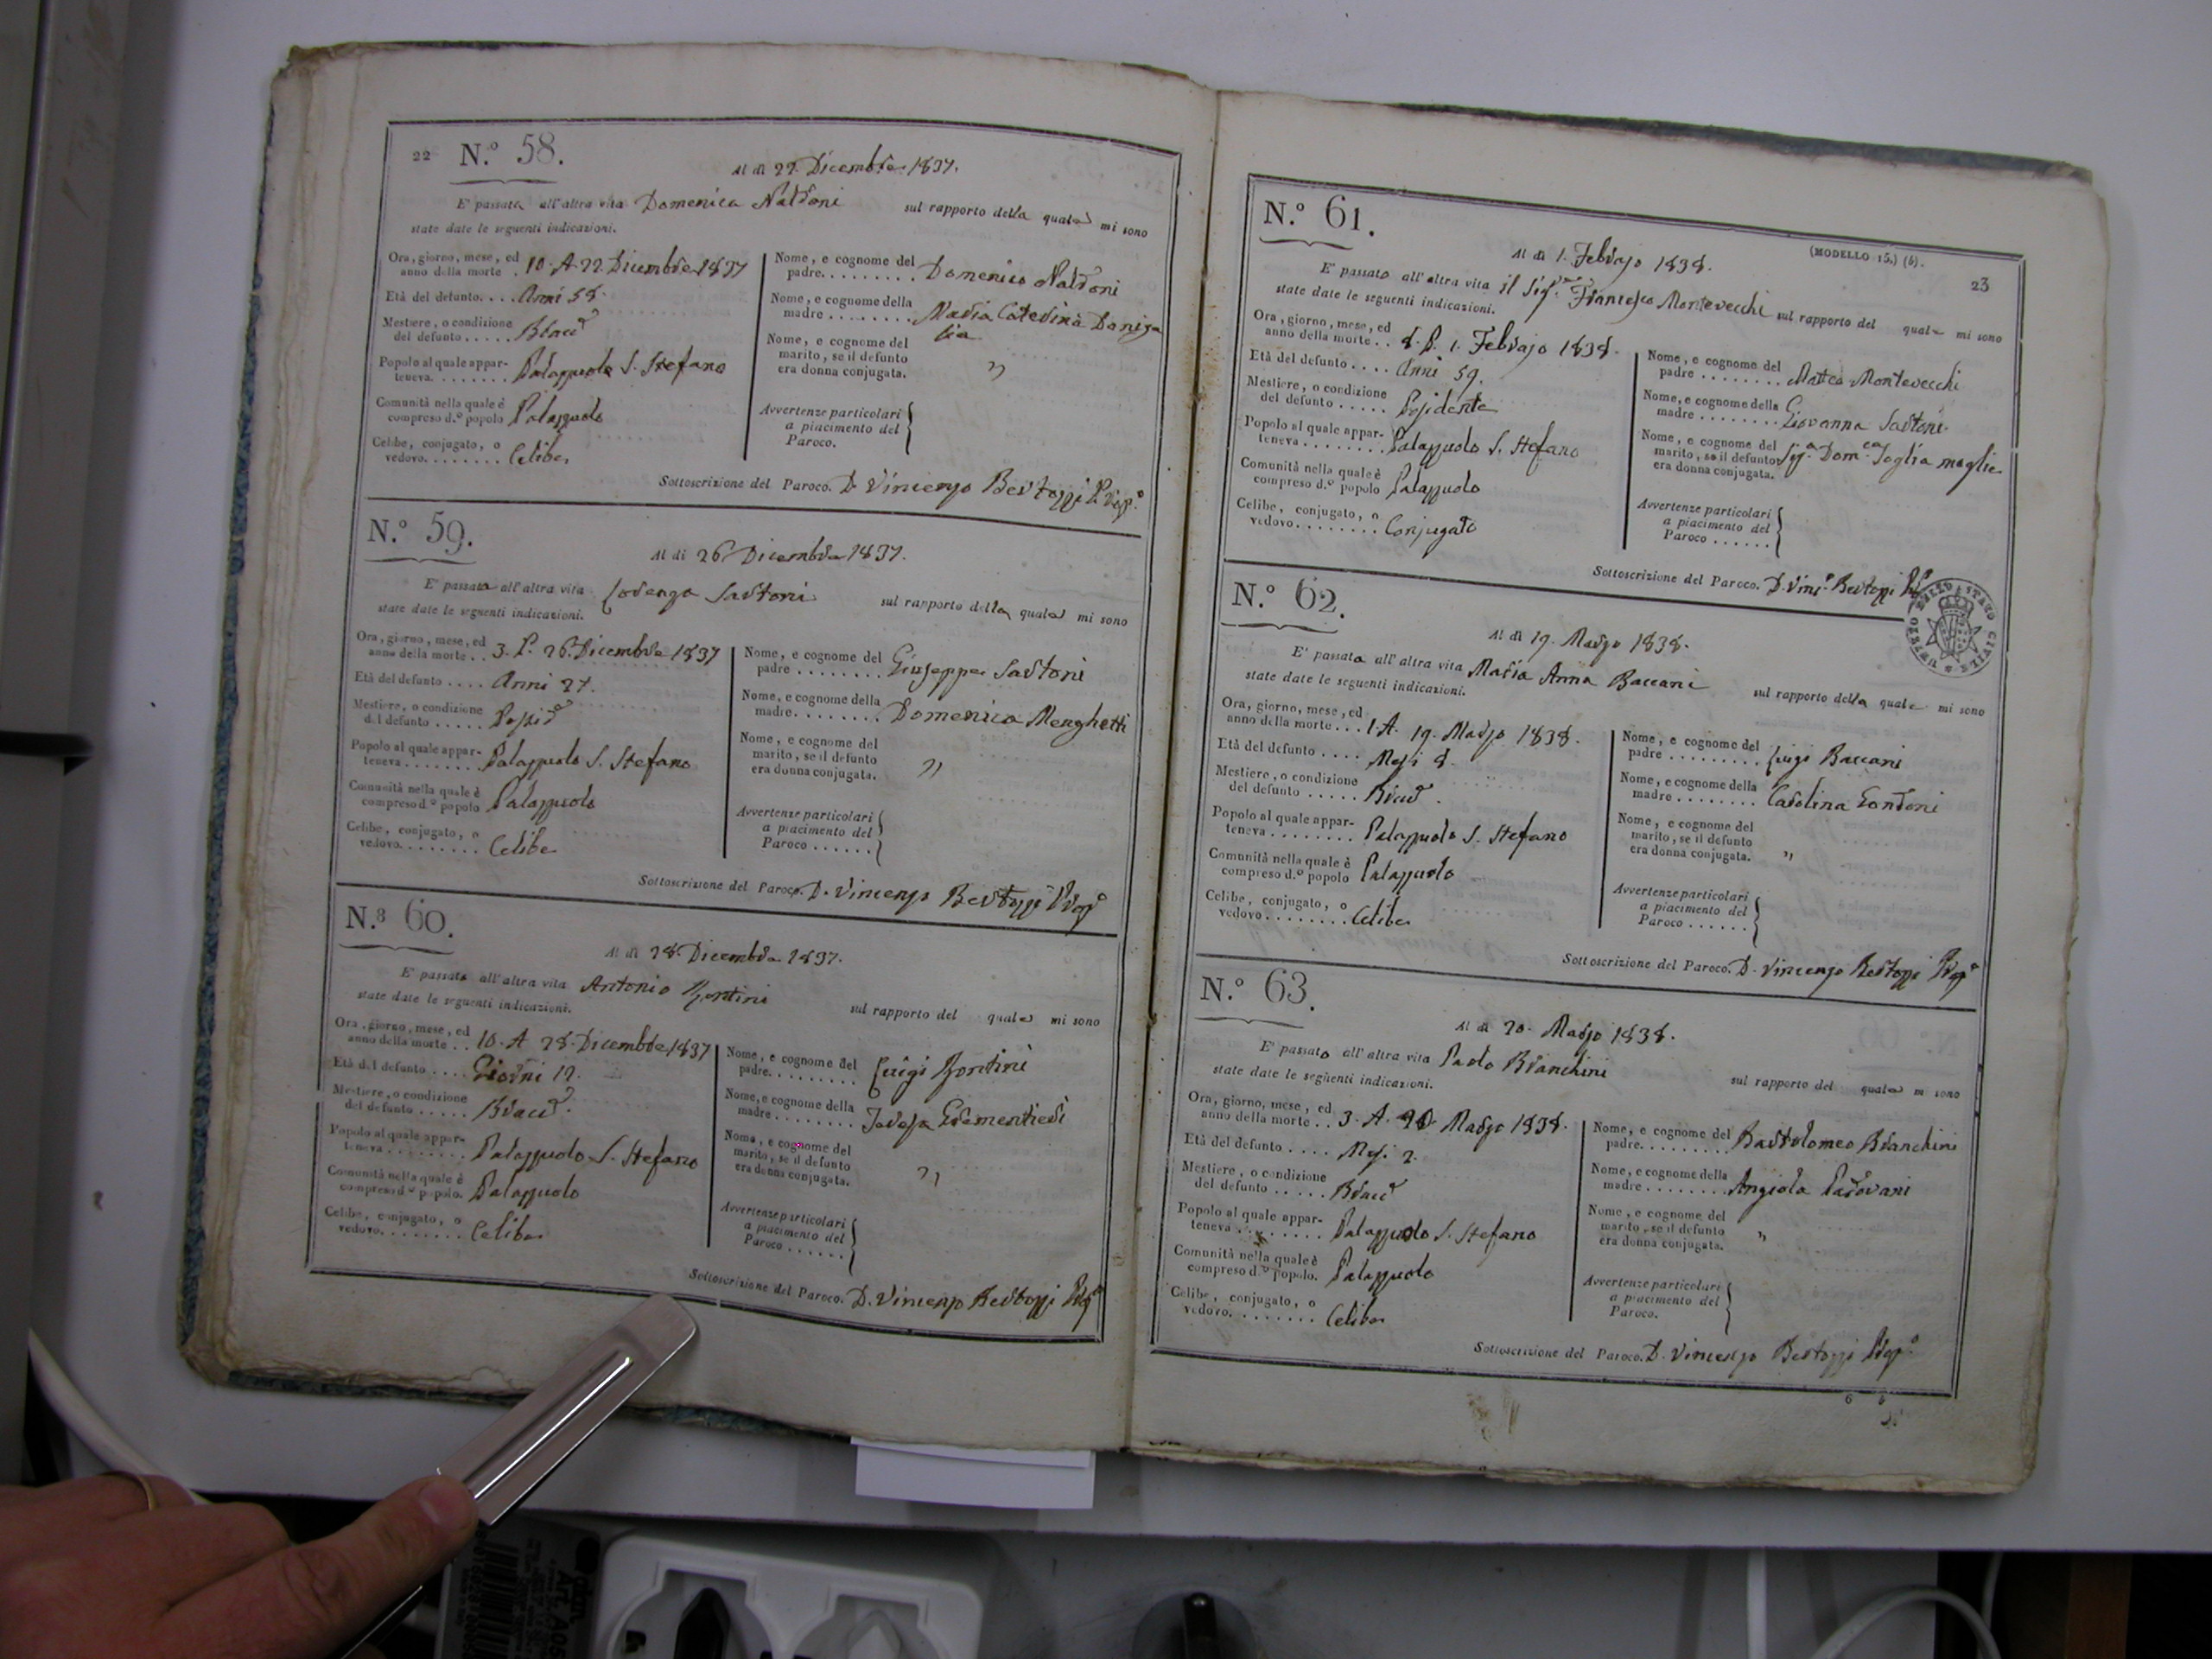 22 N.º 58.
Al dì 22. Dicembre 1837.
E' passata all'altra vita Domenica Naldoni sul rapporto della quale mi sono
state date le seguenti indicazioni.
Ora, giorno, mese, ed
anno della morte . 10. A. 22 Dicembre 1837
Età del defunto. . . . Anni 58.
Mestiere, o condizione
del defunto . . . . . Bracᵉ
Popolo al quale appar-
teneva. . . . . . . . Palazzuolo S. Stefano
Comunità nella quale è
compreso d.º popolo Palazzuolo
Celibe, conjugato, o
vedovo. . . . . . . . Celibe
Nome, e cognome del
padre. . . . . . . . . Domenico Naldoni
Nome, e cognome della
madre . . . . . . . . . Maria Caterina
Nome, e cognome del
marito, se il defunto
era donna conjugata. "
Avvertenze particolari
a piacimento del
Paroco.
Sottoscrizione del Paroco. D. Vincenzo Bertozzi
N.º 59.
Al dì 26 Dicembre 1837.
E' passata all'altra vita Lorenza Sartoni sul rapporto della quale mi sono
state date le seguenti indicazioni.
Ora, giorno, mese, ed
anno della morte . . 3. P. 26. Dicembre 1837
Età del defunto . . . . Anni 27.
Mestiere, o condizione
del defunto . . . . .
Popolo al quale appar-
teneva . . . . . . . . Palazzuolo S. Stefano
Comunità nella quale è
compreso d.º popolo Palazzuolo
Celibe, conjugato, o
vedovo. . . . . . . . Celibe
Nome, e cognome del
padre . . . . . . . . Giuseppe Sartoni
Nome, e cognome della
madre. . . . . . . . Domenica Menghetti
Nome, e cognome del
marito, se il defunto
era donna conjugata. "
Avvertenze particolari
a piacimento del
Paroco . . . . . .
Sottoscrizione del Paroco. D. Vincenzo Bertozzi
N.º 60.
Al dì 28 Dicembre 1837.
E' passato all'altra vita Antonio sul rapporto del quale mi sono
state date le seguenti indicazioni.
Ora, giorno, mese, ed
anno della morte . . 10. A 28. Dicembre 1837
Età del defunto . . . . Giorni 12.
Mestiere, o condizione
del defunto . . . . . Bracᵉ.
Popolo al quale appar-
teneva . . . . . . . . Palazzuolo S. Stefano
Comunità nella quale è
compreso d.º popolo. Palazzuolo
Celibe, conjugato, o
vedovo. . . . . . . . Celibe
Nome, e cognome del
padre. . . . . . . . . Luigi
Nome, e cognome della
madre . . . . . . . . Teresa
Nome, e cognome del
marito, se il defunto
era donna conjugata. "
Avvertenze particolari
a piacimento del
Paroco . . . . . .
Sottoscrizione del Paroco. D. Vincenzo Bertozzi
N.º 61.
(MODELLO 15.) (b). 23
Al dì 1. Febrajo 1838.
E' passato all'altra vita il Sigʳ Francesco Montevecchi sul rapporto del quale mi sono
state date le seguenti indicazioni.
Ora, giorno, mese, ed
anno della morte . . 8. P. 1. Febrajo 1838.
Età del defunto . . . . Anni 59.
Mestiere, o condizione
del defunto . . . . . Possidente
Popolo al quale appar-
teneva . . . . . . . . Palazzuolo S. Stefano
Comunità nella quale è
compreso d.º popolo Palazzuolo
Celibe, conjugato, o
vedovo. . . . . . . . Conjugato
Nome, e cognome del
padre . . . . . . . . Matteo Montevecchi
Nome, e cognome della
madre . . . . . . . . Giovanna Sartoni
Nome, e cognome del
marito, se il defunto Sigʳᵃ Domᶜᵃ moglie
era donna conjugata.
Avvertenze particolari
a piacimento del
Paroco . . . . . .
Sottoscrizione del Paroco. D. Vincº Bertozzi
UFFIZIO DELLO STATO CIVILE
N.º 62.
Al dì 19. Marzo 1838.
E' passata all'altra vita Maria Anna Baccani sul rapporto della quale mi sono
state date le seguenti indicazioni.
Ora, giorno, mese, ed
anno della morte . . . 1 A. 19. Marzo 1838.
Età del defunto . . . . Mesi 8.
Mestiere, o condizione
del defunto . . . . . Bracᵉ.
Popolo al quale appar-
teneva . . . . . . . . Palazzuolo S. Stefano
Comunità nella quale è
compreso d.º popolo Palazzuolo
Celibe, conjugato, o
vedovo. . . . . . . . Celibe
Nome, e cognome del
padre . . . . . . . . . Luigi Baccani
Nome, e cognome della
madre . . . . . . . . Carolina
Nome, e cognome del
marito, se il defunto
era donna conjugata. "
Avvertenze particolari
a piacimento del
Paroco . . . . . .
Sottoscrizione del Paroco. D. Vincenzo Bertozzi
N.º 63.
Al dì 20. Marzo 1838.
E' passato all'altra vita Paolo Branchini sul rapporto del quale mi sono
state date le seguenti indicazioni.
Ora, giorno, mese, ed
anno della morte . . 3. A. 20 Marzo 1838.
Età del defunto . . . . Mesi 2.
Mestiere, o condizione
del defunto . . . . . Bracᵉ
Popolo al quale appar-
teneva . . . . . . . . Palazzuolo S. Stefano
Comunità nella quale è
compreso d.º popolo. Palazzuolo
Celibe, conjugato, o
vedovo. . . . . . . . Celibe
Nome, e cognome del
padre. . . . . . . . . Bartolomeo Branchini
Nome, e cognome della
madre . . . . . . . . Angiola Padovani
Nome, e cognome del
marito, se il defunto
era donna conjugata. "
Avvertenze particolari
a piacimento del
Paroco.
Sottoscrizione del Paroco. D. Vincenzo Bertozzi